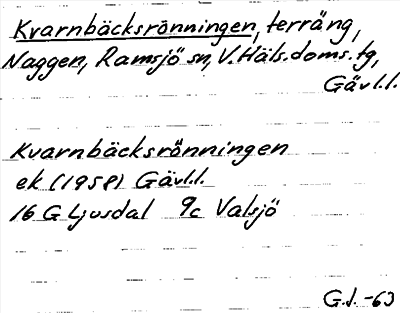 Kvarnbäcksrönningen, terräng,
Naggen, Ramsjö sn, V. Häls. doms. tg,
Gävl.l.
Kvarnbäcksrönningen
ek (1958) Gävl.l.
16 G Ljusdal 9c Valsjö
G.J. -63